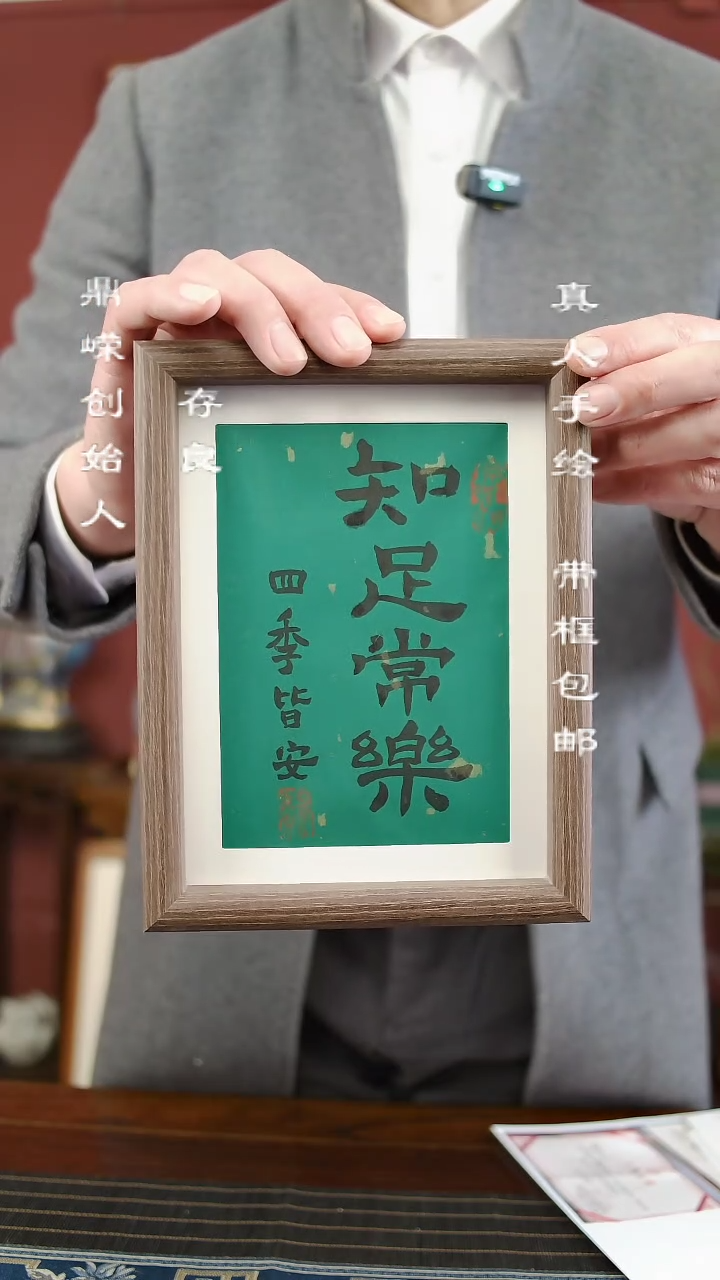 知足常樂
四季皆安
鼎嵘创始人
存良
真人手绘 带框包邮